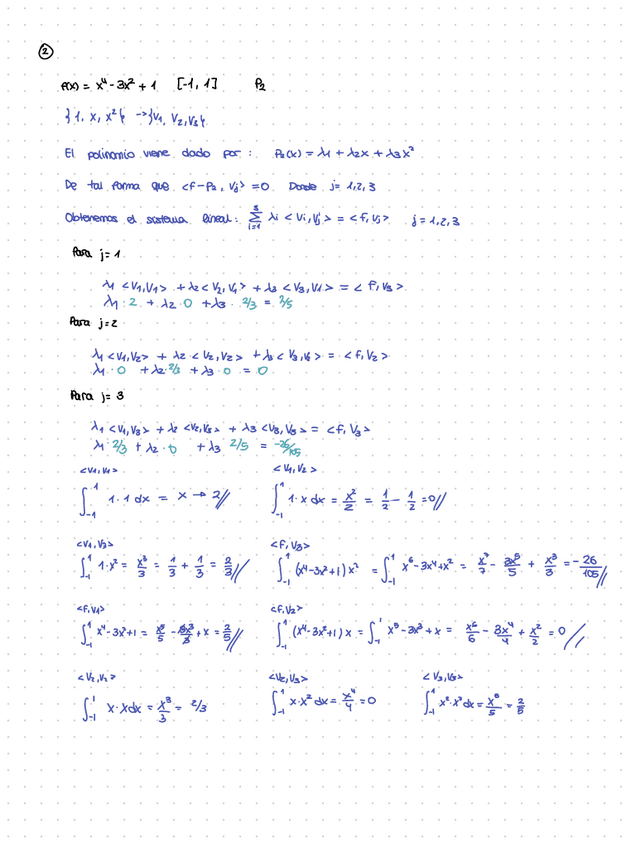 2
f(x) = x⁴ - 3x² + 1 [-1, 1] P₂
{1, x, x²} → {v₁, v₂, v₃}
El polinomio viene dado por: P₂(x) = λ₁ + λ₂x + λ₃x²
De tal forma que <f-P₂, vⱼ> = 0 Donde j = 1,2,3
Obtenemos el sistema lineal: ∑ᵢ₌₁³ λᵢ <vᵢ, vⱼ> = <f, vⱼ> j = 1,2,3
Para j = 1
λ₁ <v₁,v₁> + λ₂ <v₂,v₁> + λ₃ <v₃,v₁> = <f, v₃>
λ₁ · 2 + λ₂ · 0 + λ₃ · 2/3 = 2/5
Para j = 2
λ₁ <v₁,v₂> + λ₂ <v₂,v₂> + λ₃ <v₃,v₂> = <f, v₂>
λ₁ · 0 + λ₂ · 2/3 + λ₃ · 0 = 0
Para j = 3
λ₁ <v₁,v₃> + λ₂ <v₂,v₃> + λ₃ <v₃,v₃> = <f, v₃>
λ₁ · 2/3 + λ₂ · 0 + λ₃ 2/5 = -26/105
<v₁,v₁> <v₁,v₂>
∫₋₁¹ 1·1 dx = x → 2// ∫₋₁¹ 1·x dx = x²/2 = 1/2 - 1/2 = 0//
<v₁,v₃> <f,v₃>
∫₋₁¹ 1·x² = x³/3 = 1/3 + 1/3 = 2/3// ∫₋₁¹ (x⁴-3x²+1) x² = ∫₋₁¹ x⁶-3x⁴+x² = x⁷/7 - 3x⁵/5 + x³/3 = -26/105//
<f,v₁> <f,v₂>
∫₋₁¹ x⁴-3x²+1 = x⁵/5 - 3x³/3 + x = 2/5// ∫₋₁¹ (x⁴-3x²+1) x = ∫₋₁¹ x⁵-3x³+x = x⁶/6 - 3x⁴/4 + x²/2 = 0//
<v₂,v₂> <v₂,v₃> <v₃,v₃>
∫₋₁¹ x·x dx = x³/3 = 2/3 ∫₋₁¹ x·x² dx = x⁴/4 = 0 ∫₋₁¹ x²·x² dx = x⁵/5 = 2/5